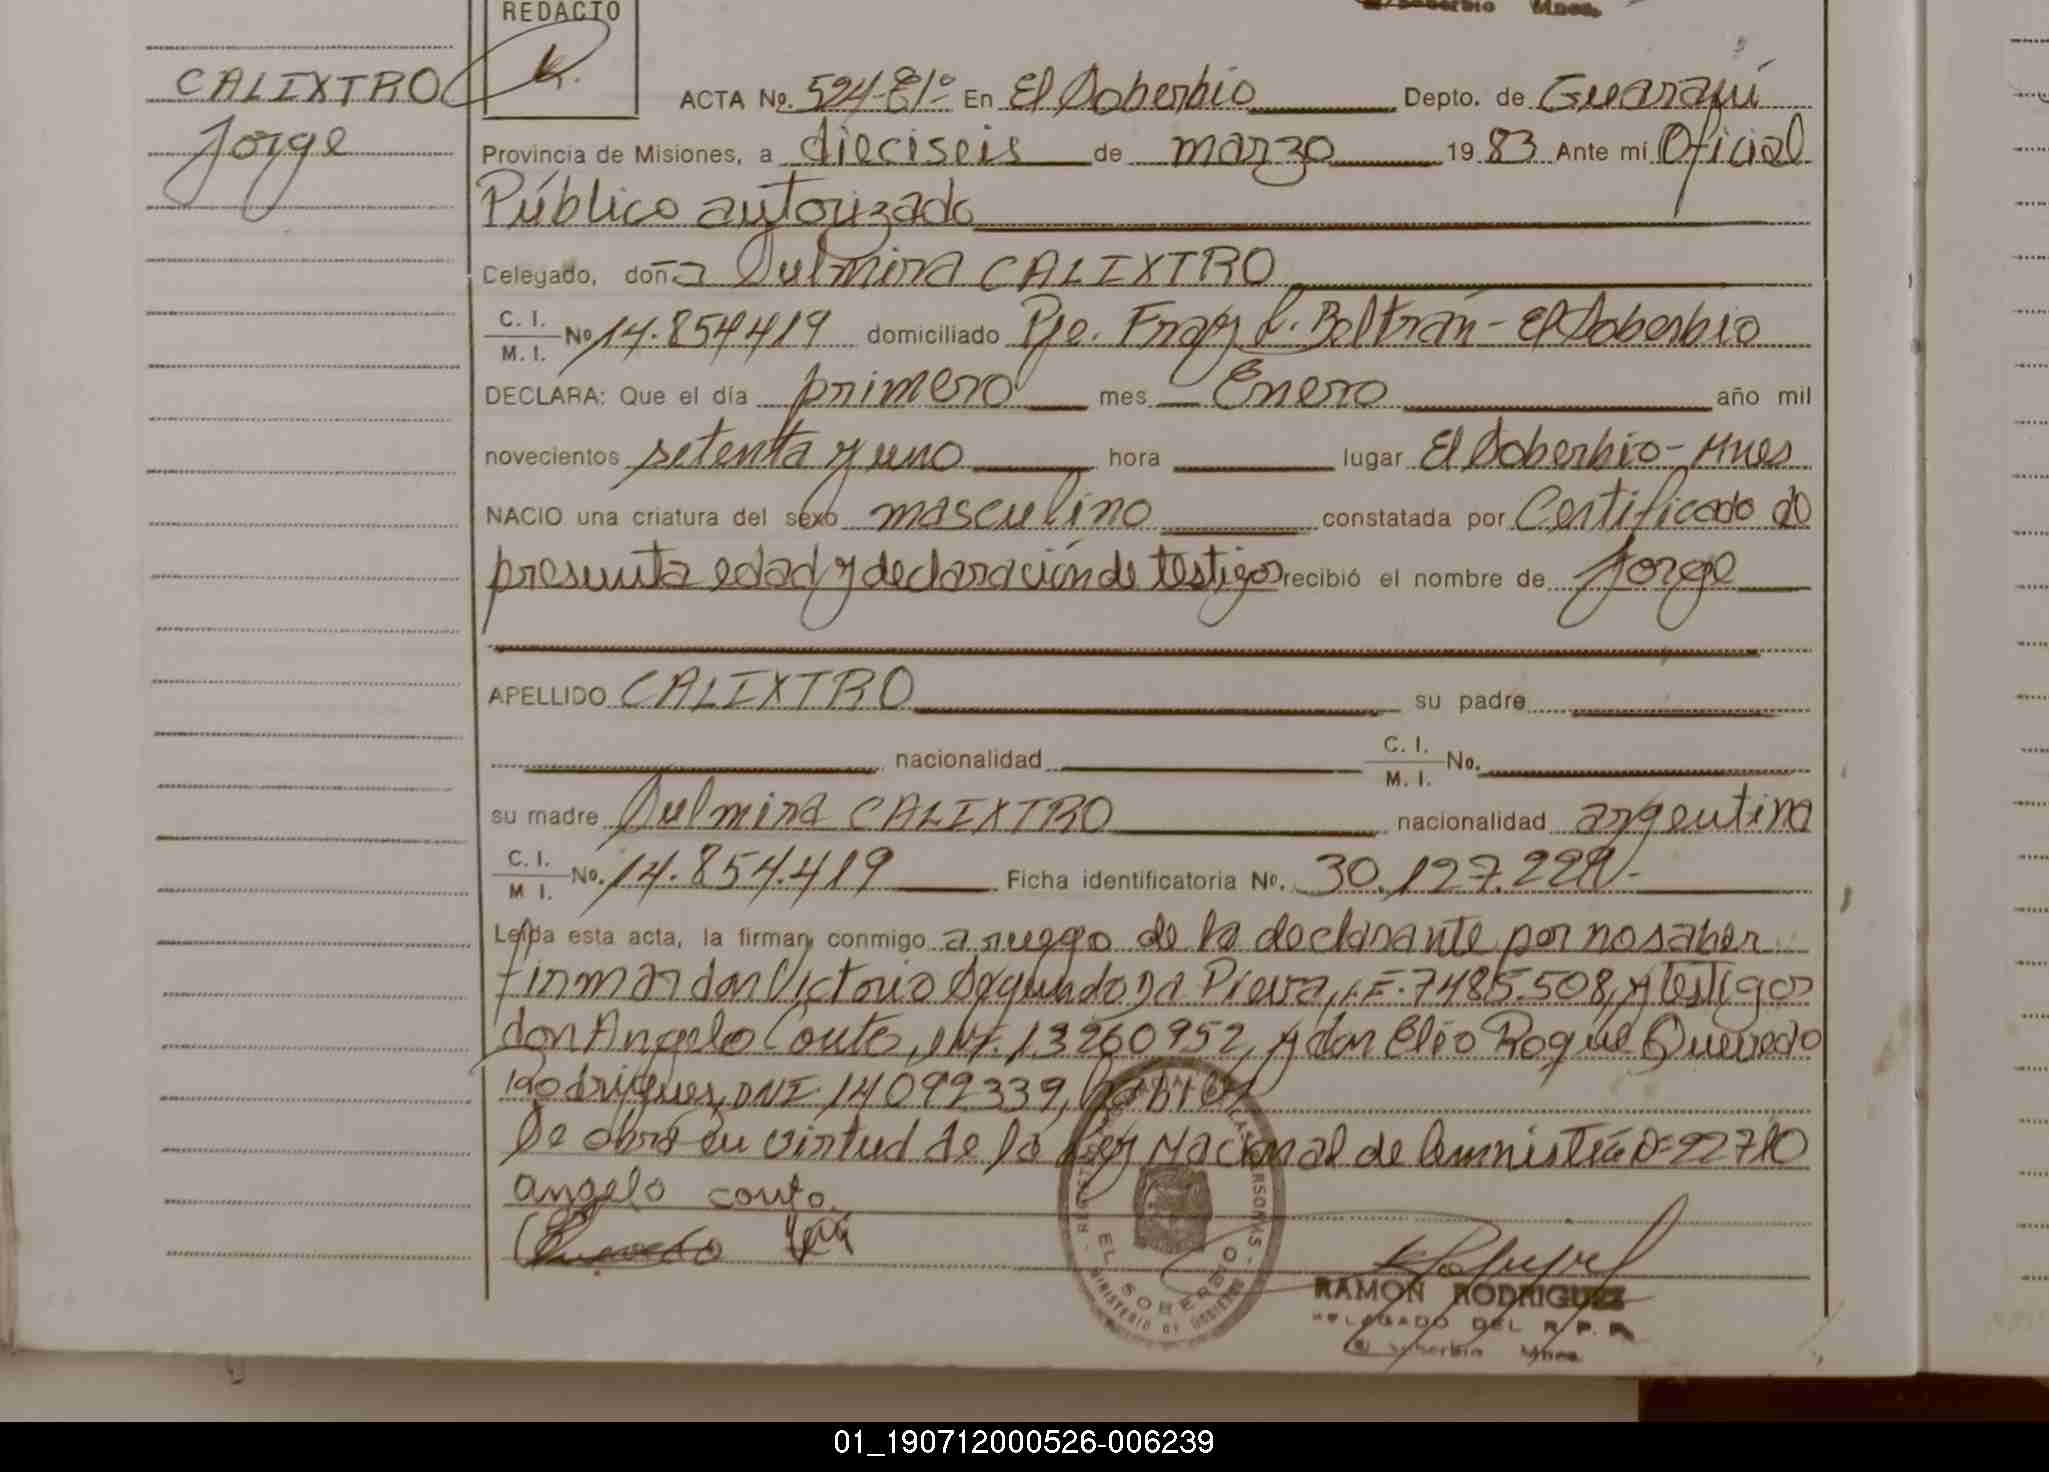 REDACTO
El Soberbio Mnes.
CALIXTRO
Jorge
ACTA No. 524-E1º En El Soberbio Depto. de Guaraní
Provincia de Misiones, a dieciseis de marzo 1983 Ante mi Oficial
Público autorizado
Celegado, doña Dulmira CALIXTRO
C. I. M. I. No 14.854419 domiciliado Pje. Fray L. Beltrán - El Soberbio
DECLARA: Que el día primero mes Enero año mil
novecientos setenta y uno hora lugar El Soberbio - Mnes
NACIO una criatura del sexo masculino constatada por Certificado de
presunta edad y declaración de testigos recibió el nombre de Jorge
APELLIDO CALIXTRO su padre
nacionalidad C. I. M. I. No.
su madre Dulmira CALIXTRO nacionalidad argentina
C. I. M I. No. 14.854.419 Ficha identificatoria No. 30.127.229-
Leída esta acta, la firman conmigo a ruego de la declarante por no saber
firmar don Victorio Segundo Da Pieva, L.E. 7485.508, y testigos
don Angelo Couto, DNI. 13260952, y don Elio Roque Quevedo
Rodrigues, DNI. 14092339,
Se obra en virtud de la Ley Nacional de Amnistía 22710
angelo couto
RAMON RODRIGUEZ
DELEGADO DEL R. P. P.
El Soberbio Mnes.
EL SOBERBIO
MINISTERIO DE GOBIERNO
01_190712000526-006239